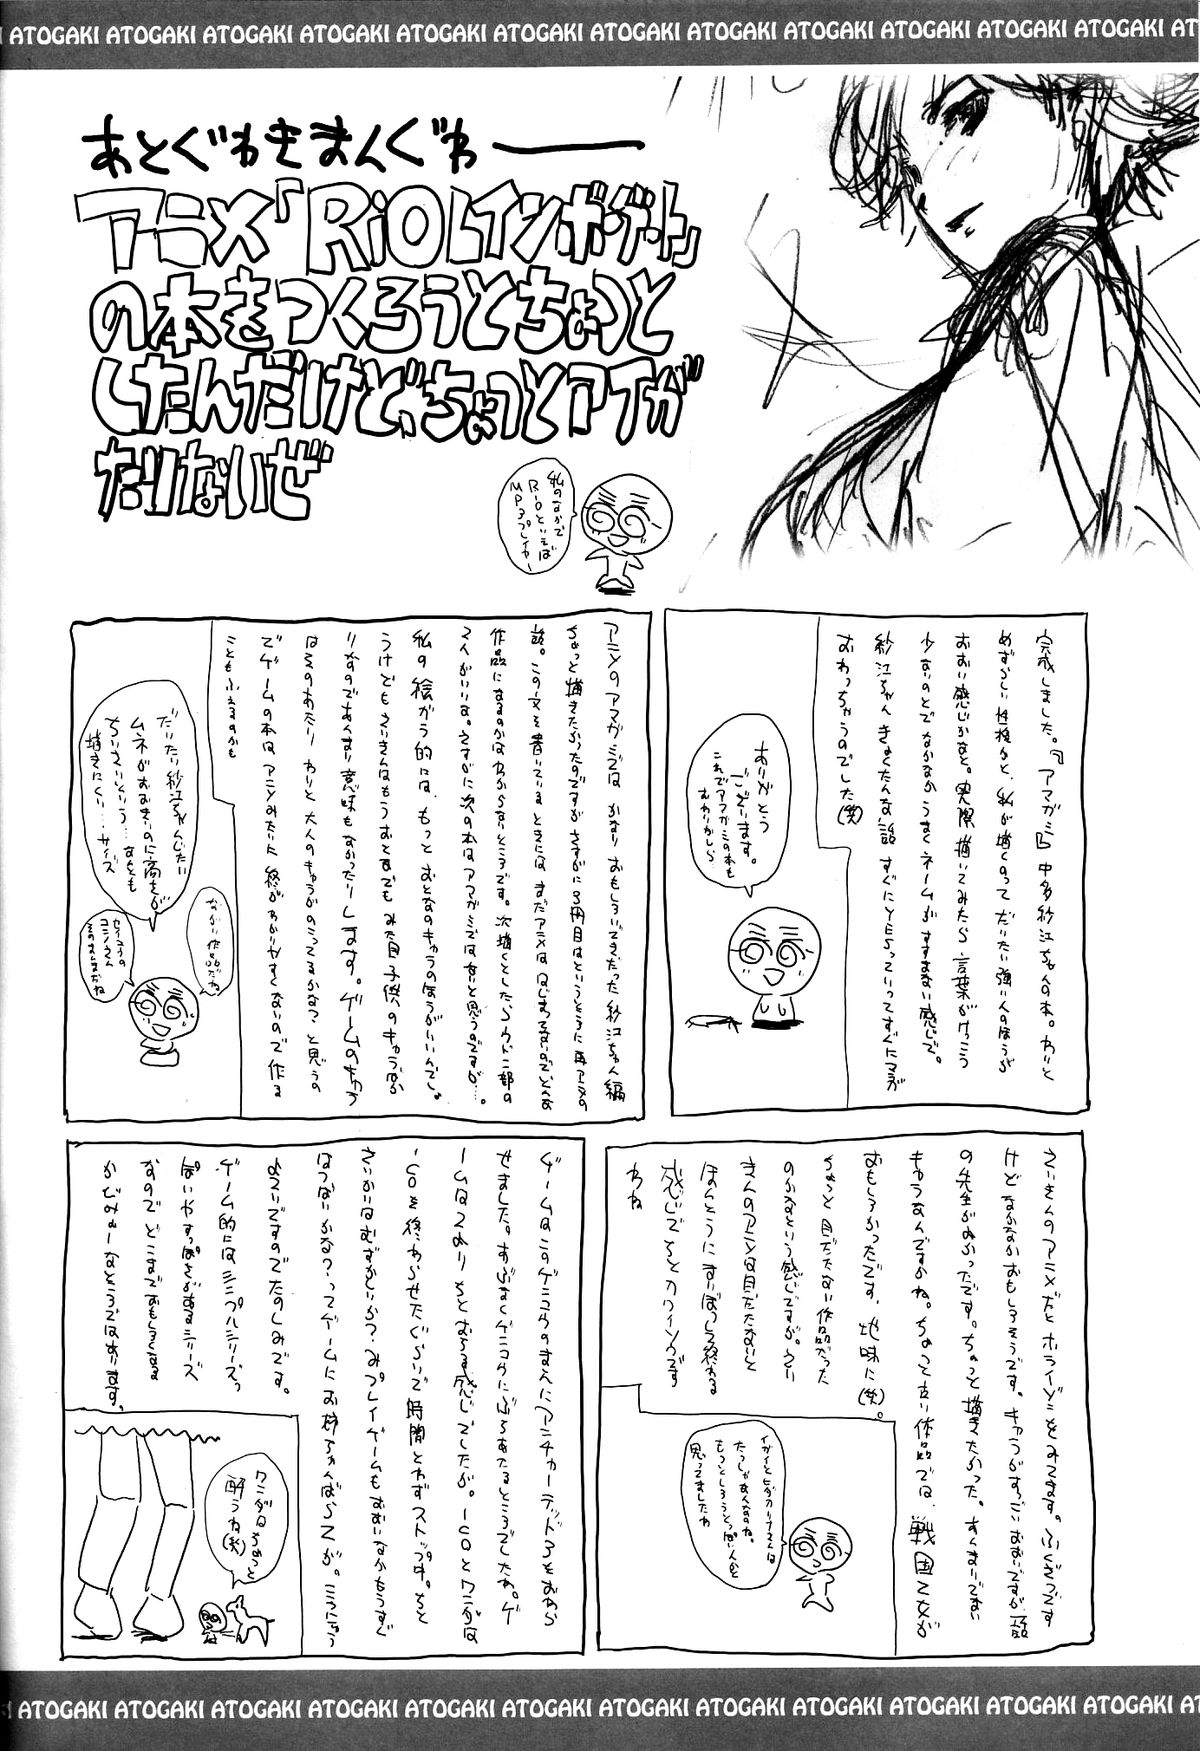 ATOGAKI ATOGAKI ATOGAKI ATOGAKI ATOGAKI ATOGAKI ATOGAKI ATOGAKI ATOGAKI ATOGAKI ATOGAKI ATOGAKI AT
あとぐわきまんぐわー
アニメ「RiOレインボーゲート」
の本をつくろうとちょっと
したんだけど、ちょっとアイが
たりないぜ
私のなかで
Rioといえば
MP3プレイヤー
完成しました。『アマガミ』中多紗江ちゃんの本。わりと
めずらしい性格かと、私が描くのって だいたい強い人のほうが
おおい感じかなと。実際描いてみたら 言葉がけっこう
少ないのとでなかなかうまくネームがすすまない感じで。
紗江ちゃん きょくたんな話 すぐにYESっていってすぐにマンガ
おわっちゃうのでした(笑)
ありがとう
ございます。
これでアマガミの本も
おわりかしら
アニメのアマガミSSは かなり おもしろいできだった 紗江ちゃん編
ちょっと描きたかったのですが さすがに3冊目はというところに 再アニメの
話。この文を書いているときには まだアニメは はじまってないので どんな
作品になるのかはわからないところです。次描くとしたらウド二部の
さんがいいな。さすがに次の本はアマガミではないと思うのですが…。
私の絵がら的には、もっと おとなのキャラのほうがいいんでしょ
うけども さいきんはもう おとなでも みた目子供のキャラばか
りなのであんまり意味もなかったりします。ゲームのキャラ
はそのあたり わりと 大人のキャラがのこってるかな?と思うの
でゲームの本は アニメみたいに 終がわかりやすくないので 作る
こともふえるのかも
だいたい紗江ちゃんじたい
ムネがおおきいのに高さが
ちいさいという…なんとも
描きにくい…サイズ
ながい作品だわ
さいきんのアニメだと ホライゾンをみてます。ふくざつです
けど なかなか おもしろそうです。キャラが すっごい おおいですが 話
の先生がよかったです。ちょっと描きたかった。すんませんない
キャラなんですかね。ちょっと古い作品では、戦国乙女が
おもしろかったです、地味に(笑)。
ちょっと目だたない作品だった
のかなという感じですが。さい
きんのアニメは目だたないと
ほんとうに すいぼつして終わる
感じでちとカワイソウです
わね
思ってましたわ
ゲームはこのゲンコウのまえに「アンチャーテッド3」をおわら
せました。すぶなくゲンコウにぶちあたるところでしたわ。ゲ
ームはつまり ちと おちる感じでしたが。ICOとワンダは
ICOを終わらせたぐらいで 時間とれず ストップ中。ちと
さいかいはむずかしいか?みプレイゲームもおおいなか もうすぐ
はつばいかな?ってゲームに お姉ちゃんばらZが。こうにゅう
よていですのでたのしみです。
ゲーム的にはシンプルシリーズっ
ぽいやすっぽさがあるシリーズ
なので どこまでおもしろくなる
かびみょーなところではあります。
ワンダは ちょっと
酔うね(笑)
ATOGAKI ATOGAKI ATOGAKI ATOGAKI ATOGAKI ATOGAKI ATOGAKI ATOGAKI ATOGAKI ATOGAKI ATOGAKI ATOGAKI AT